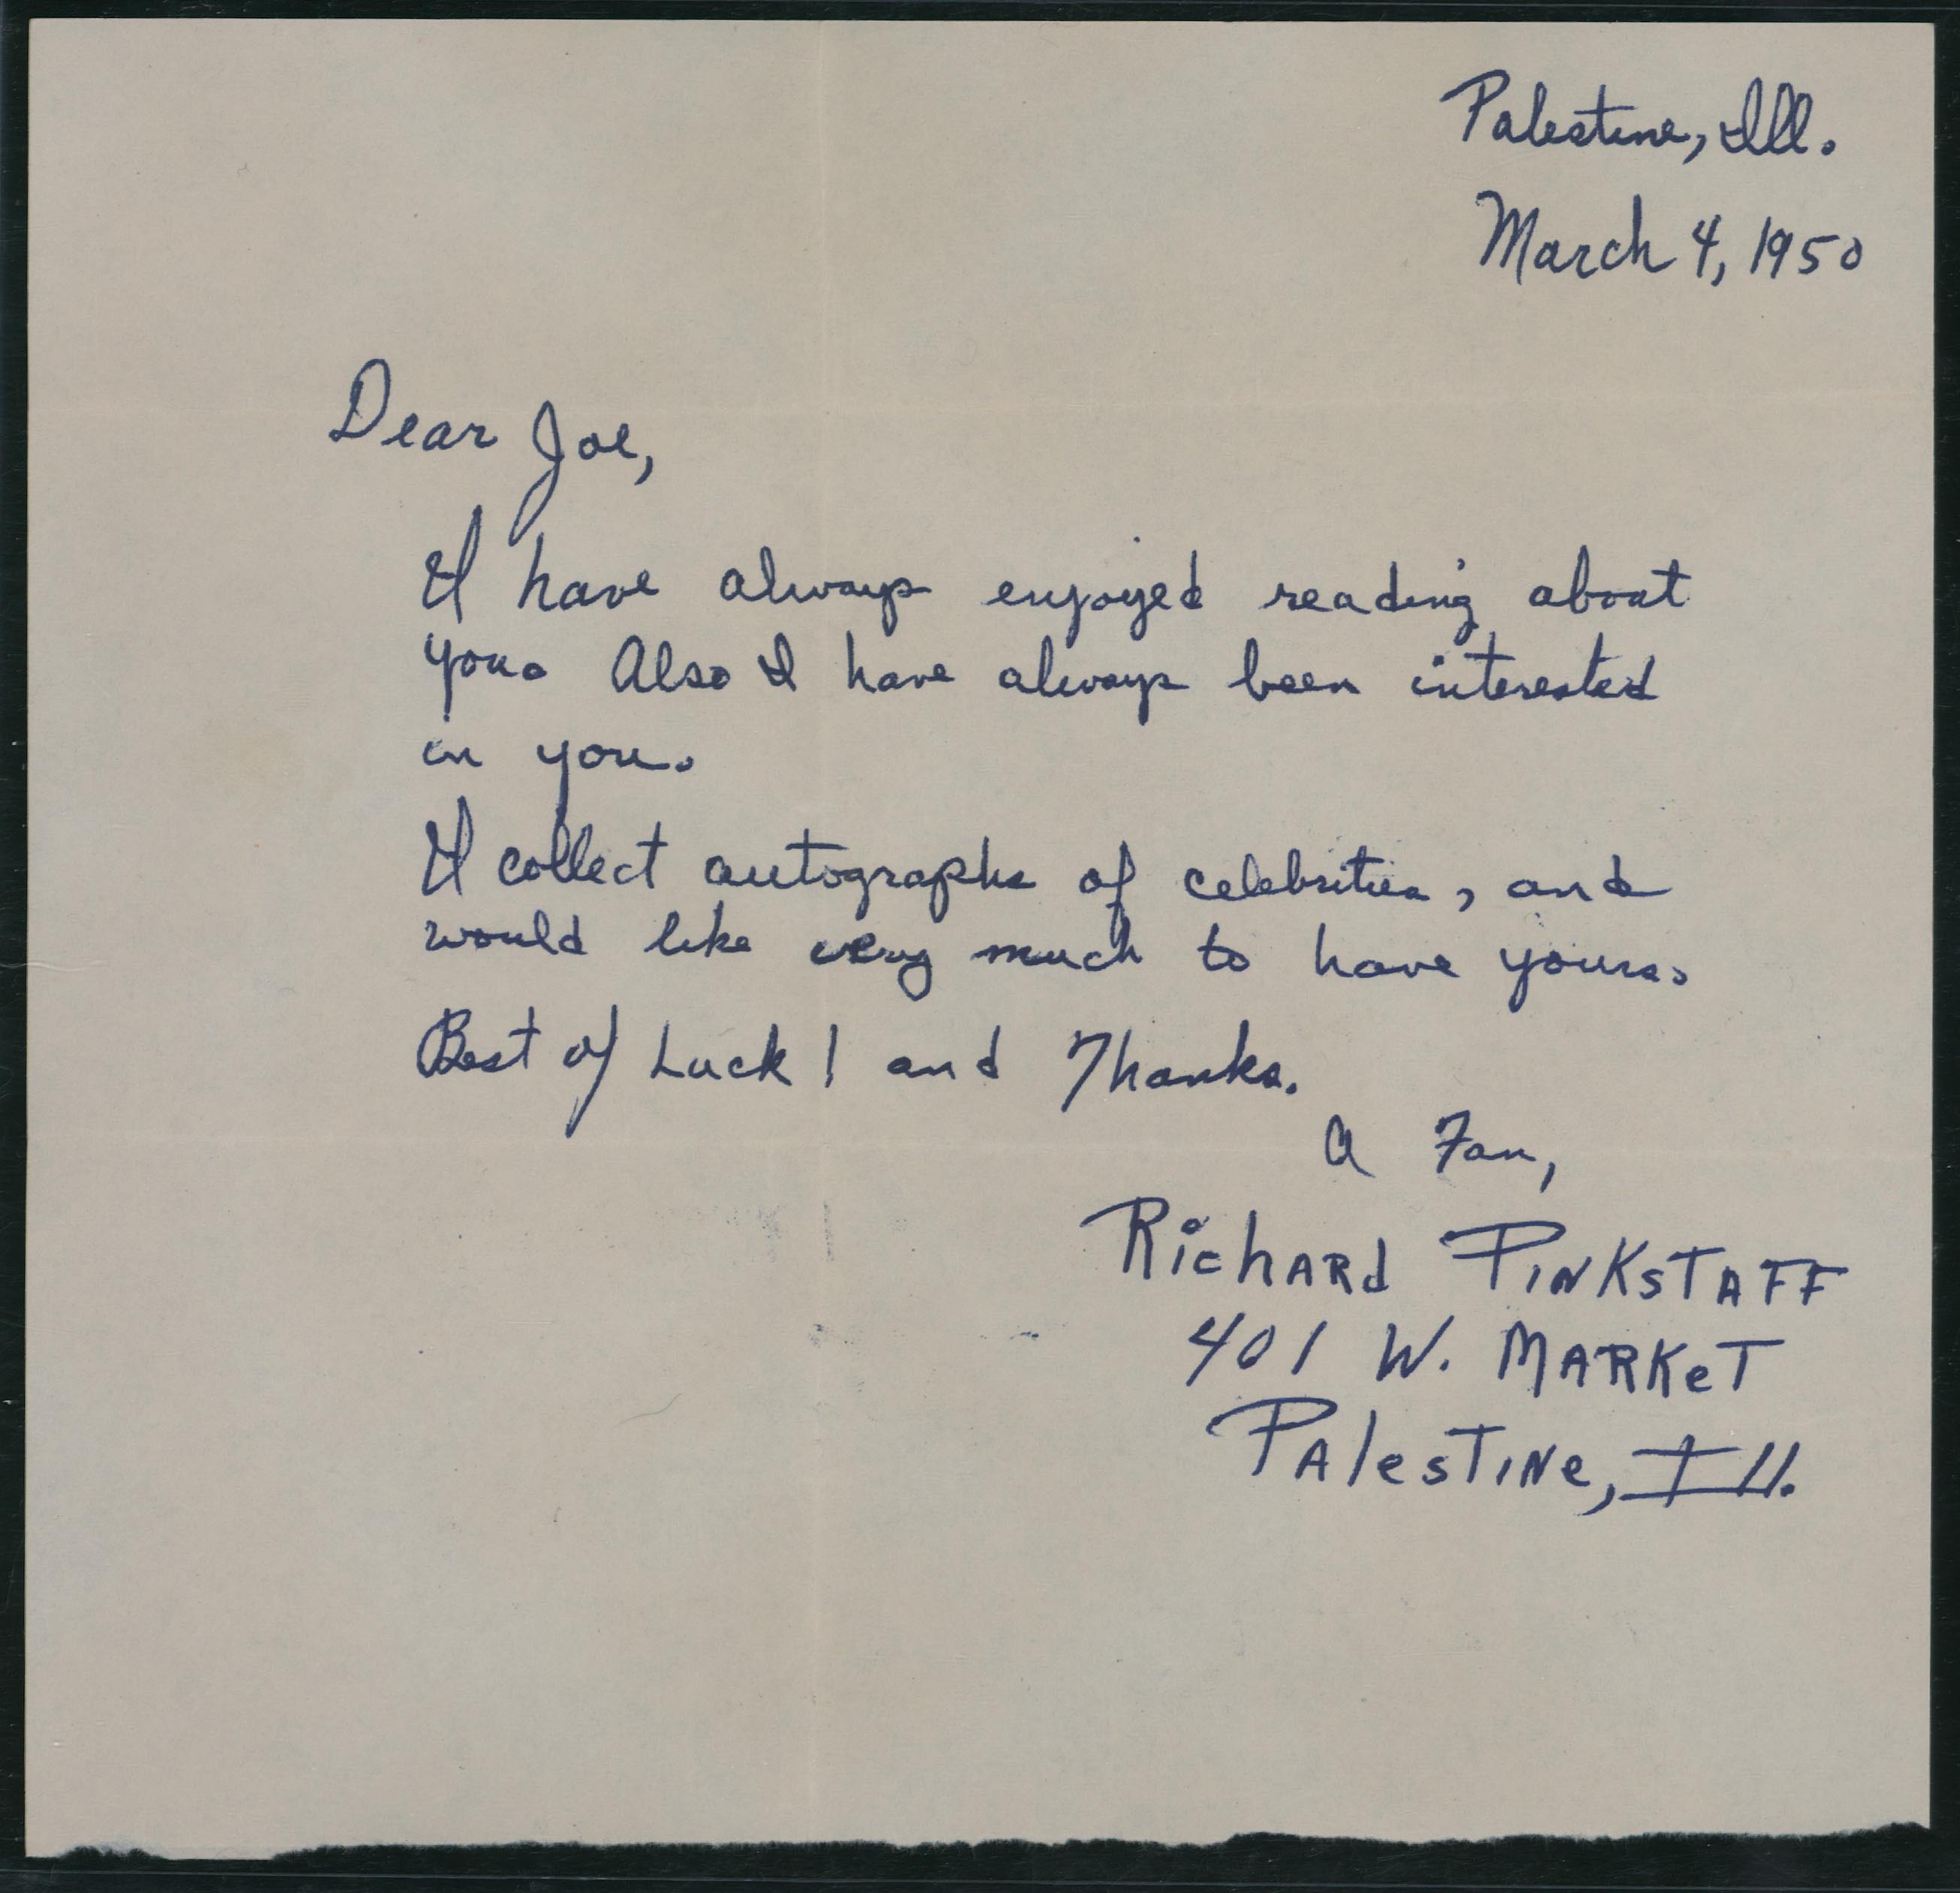 Palestine, Ill.
March 4, 1950
Dear Joe,
I have always enjoyed reading about
you. Also I have always been interested
in you.
I collect autographs of celebrities, and
would like very much to have yours.
Best of Luck! and Thanks.
A Fan,
Richard Pinkstaff
401 W. Market
Palestine, Ill.